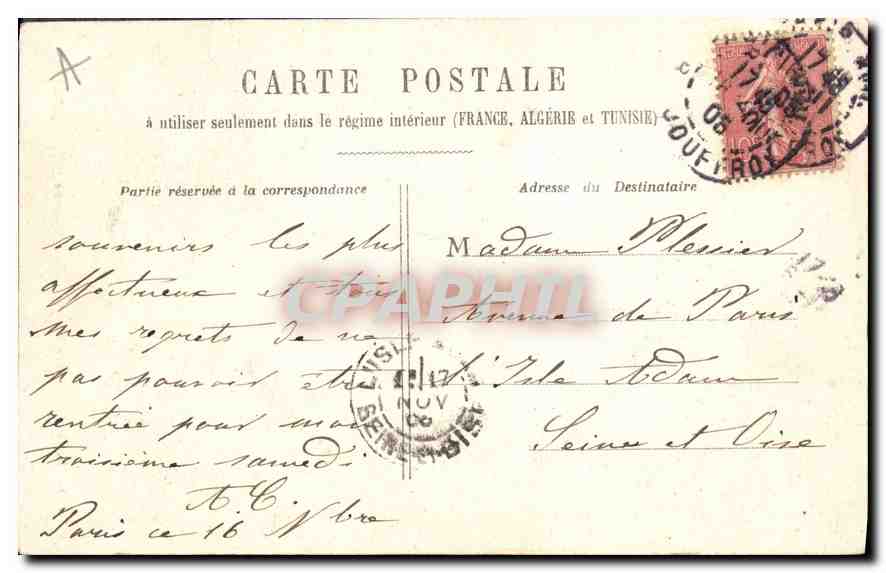 A
CARTE POSTALE
à utiliser seulement dans le régime intérieur (FRANCE, ALGÉRIE et TUNISIE)
Partie réservée à la correspondance
Adresse du Destinataire
souvenirs les plus
affectueux et tous
mes regrets de ne
pas pouvoir être
rentrée pour mon
troisième samedi
A.C.
Paris ce 16 Nbre
Madame Plessier
Avenue de Paris
l'Isle Adam
Seine et Oise
CPAPHIL
17
NOV
SEINE
JOUFFROY